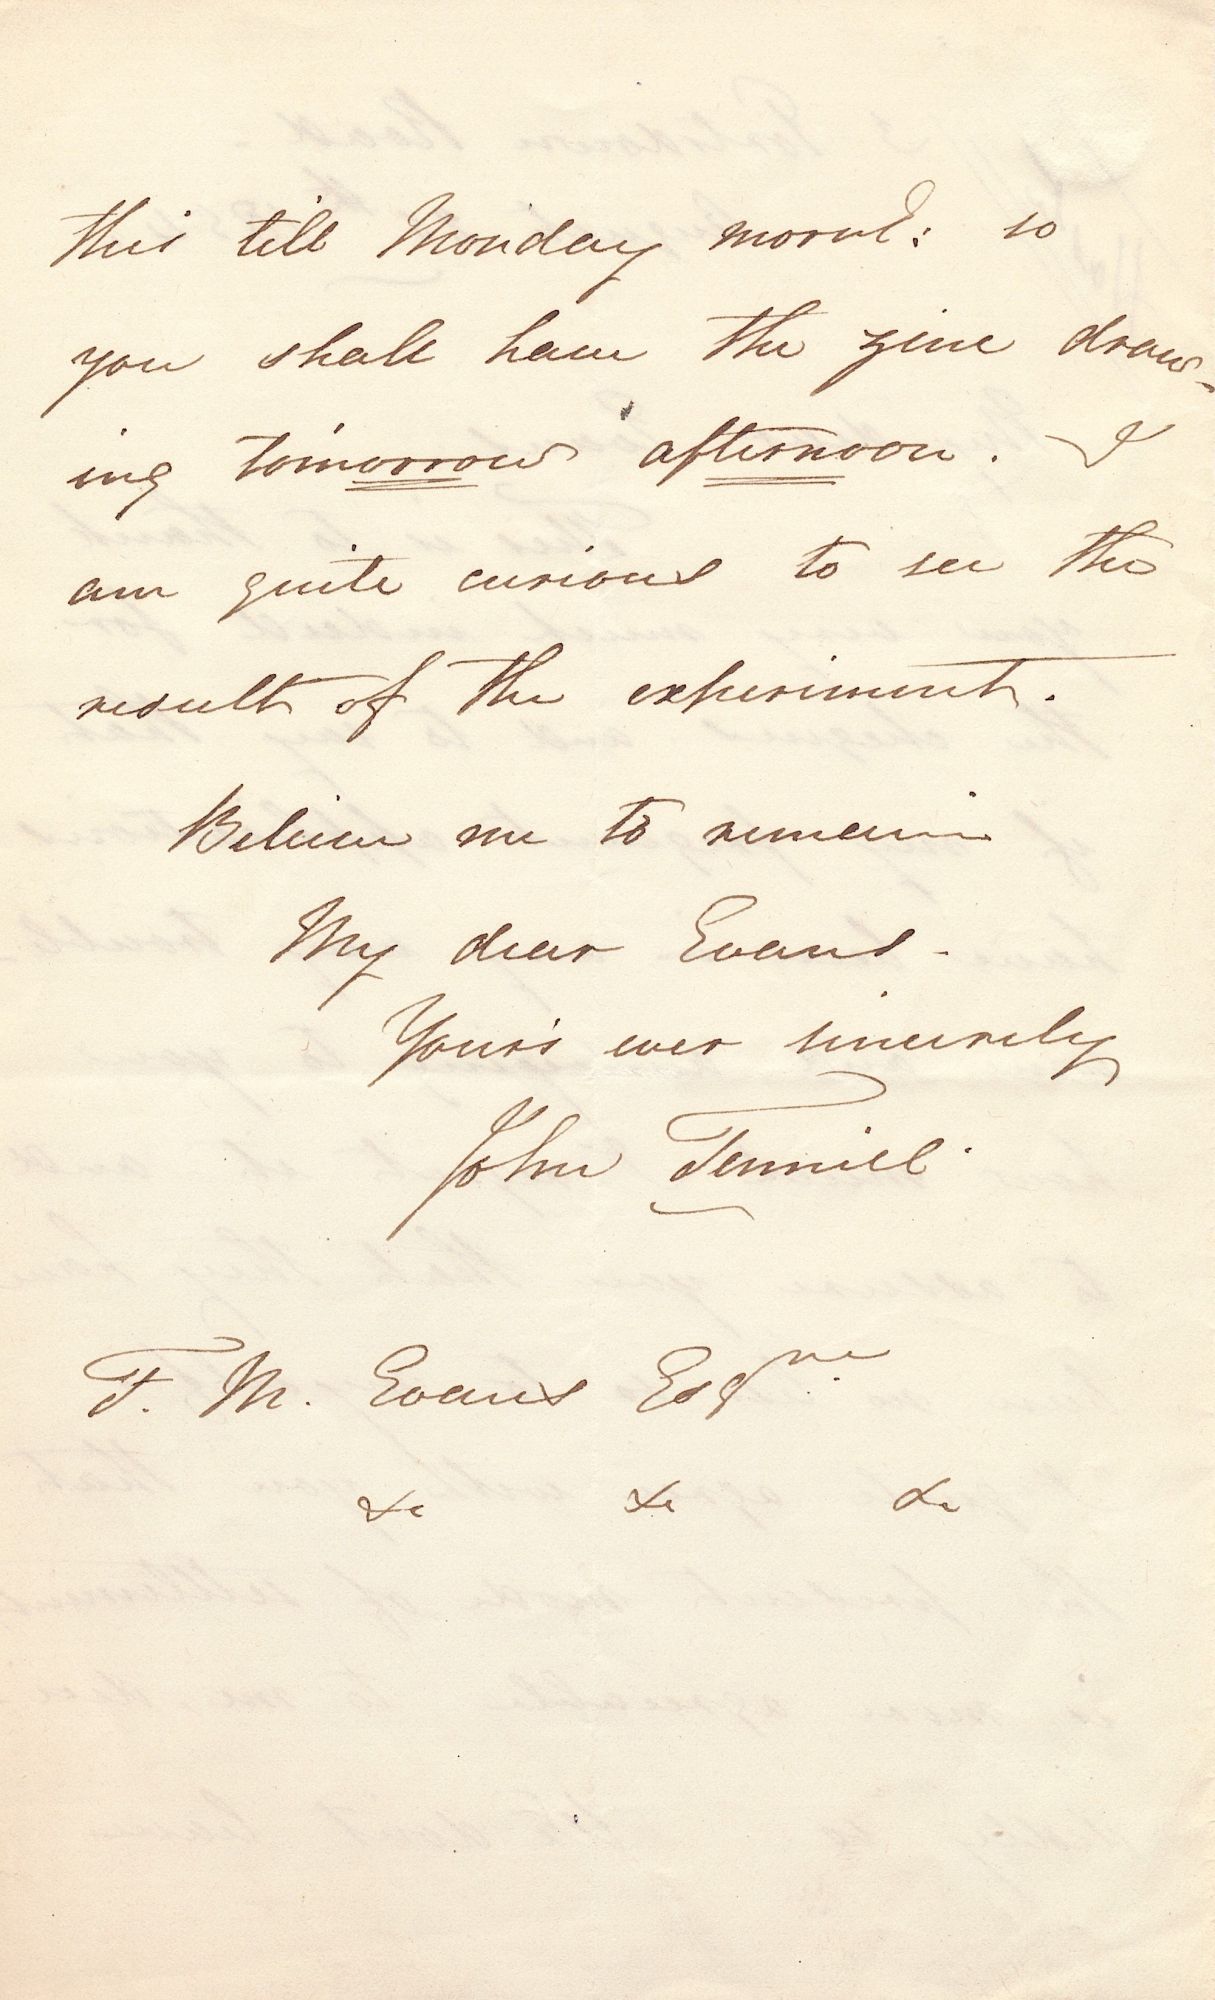 this till Monday morng: so
you shall have the zinc draw-
ing tomorrow afternoon. I
am quite curious to see the
result of the experiment.
Believe me to remain
My dear Evans -
Your's ever sincerely
John Tenniel.
F. M. Evans Esqre.
&c &c &c